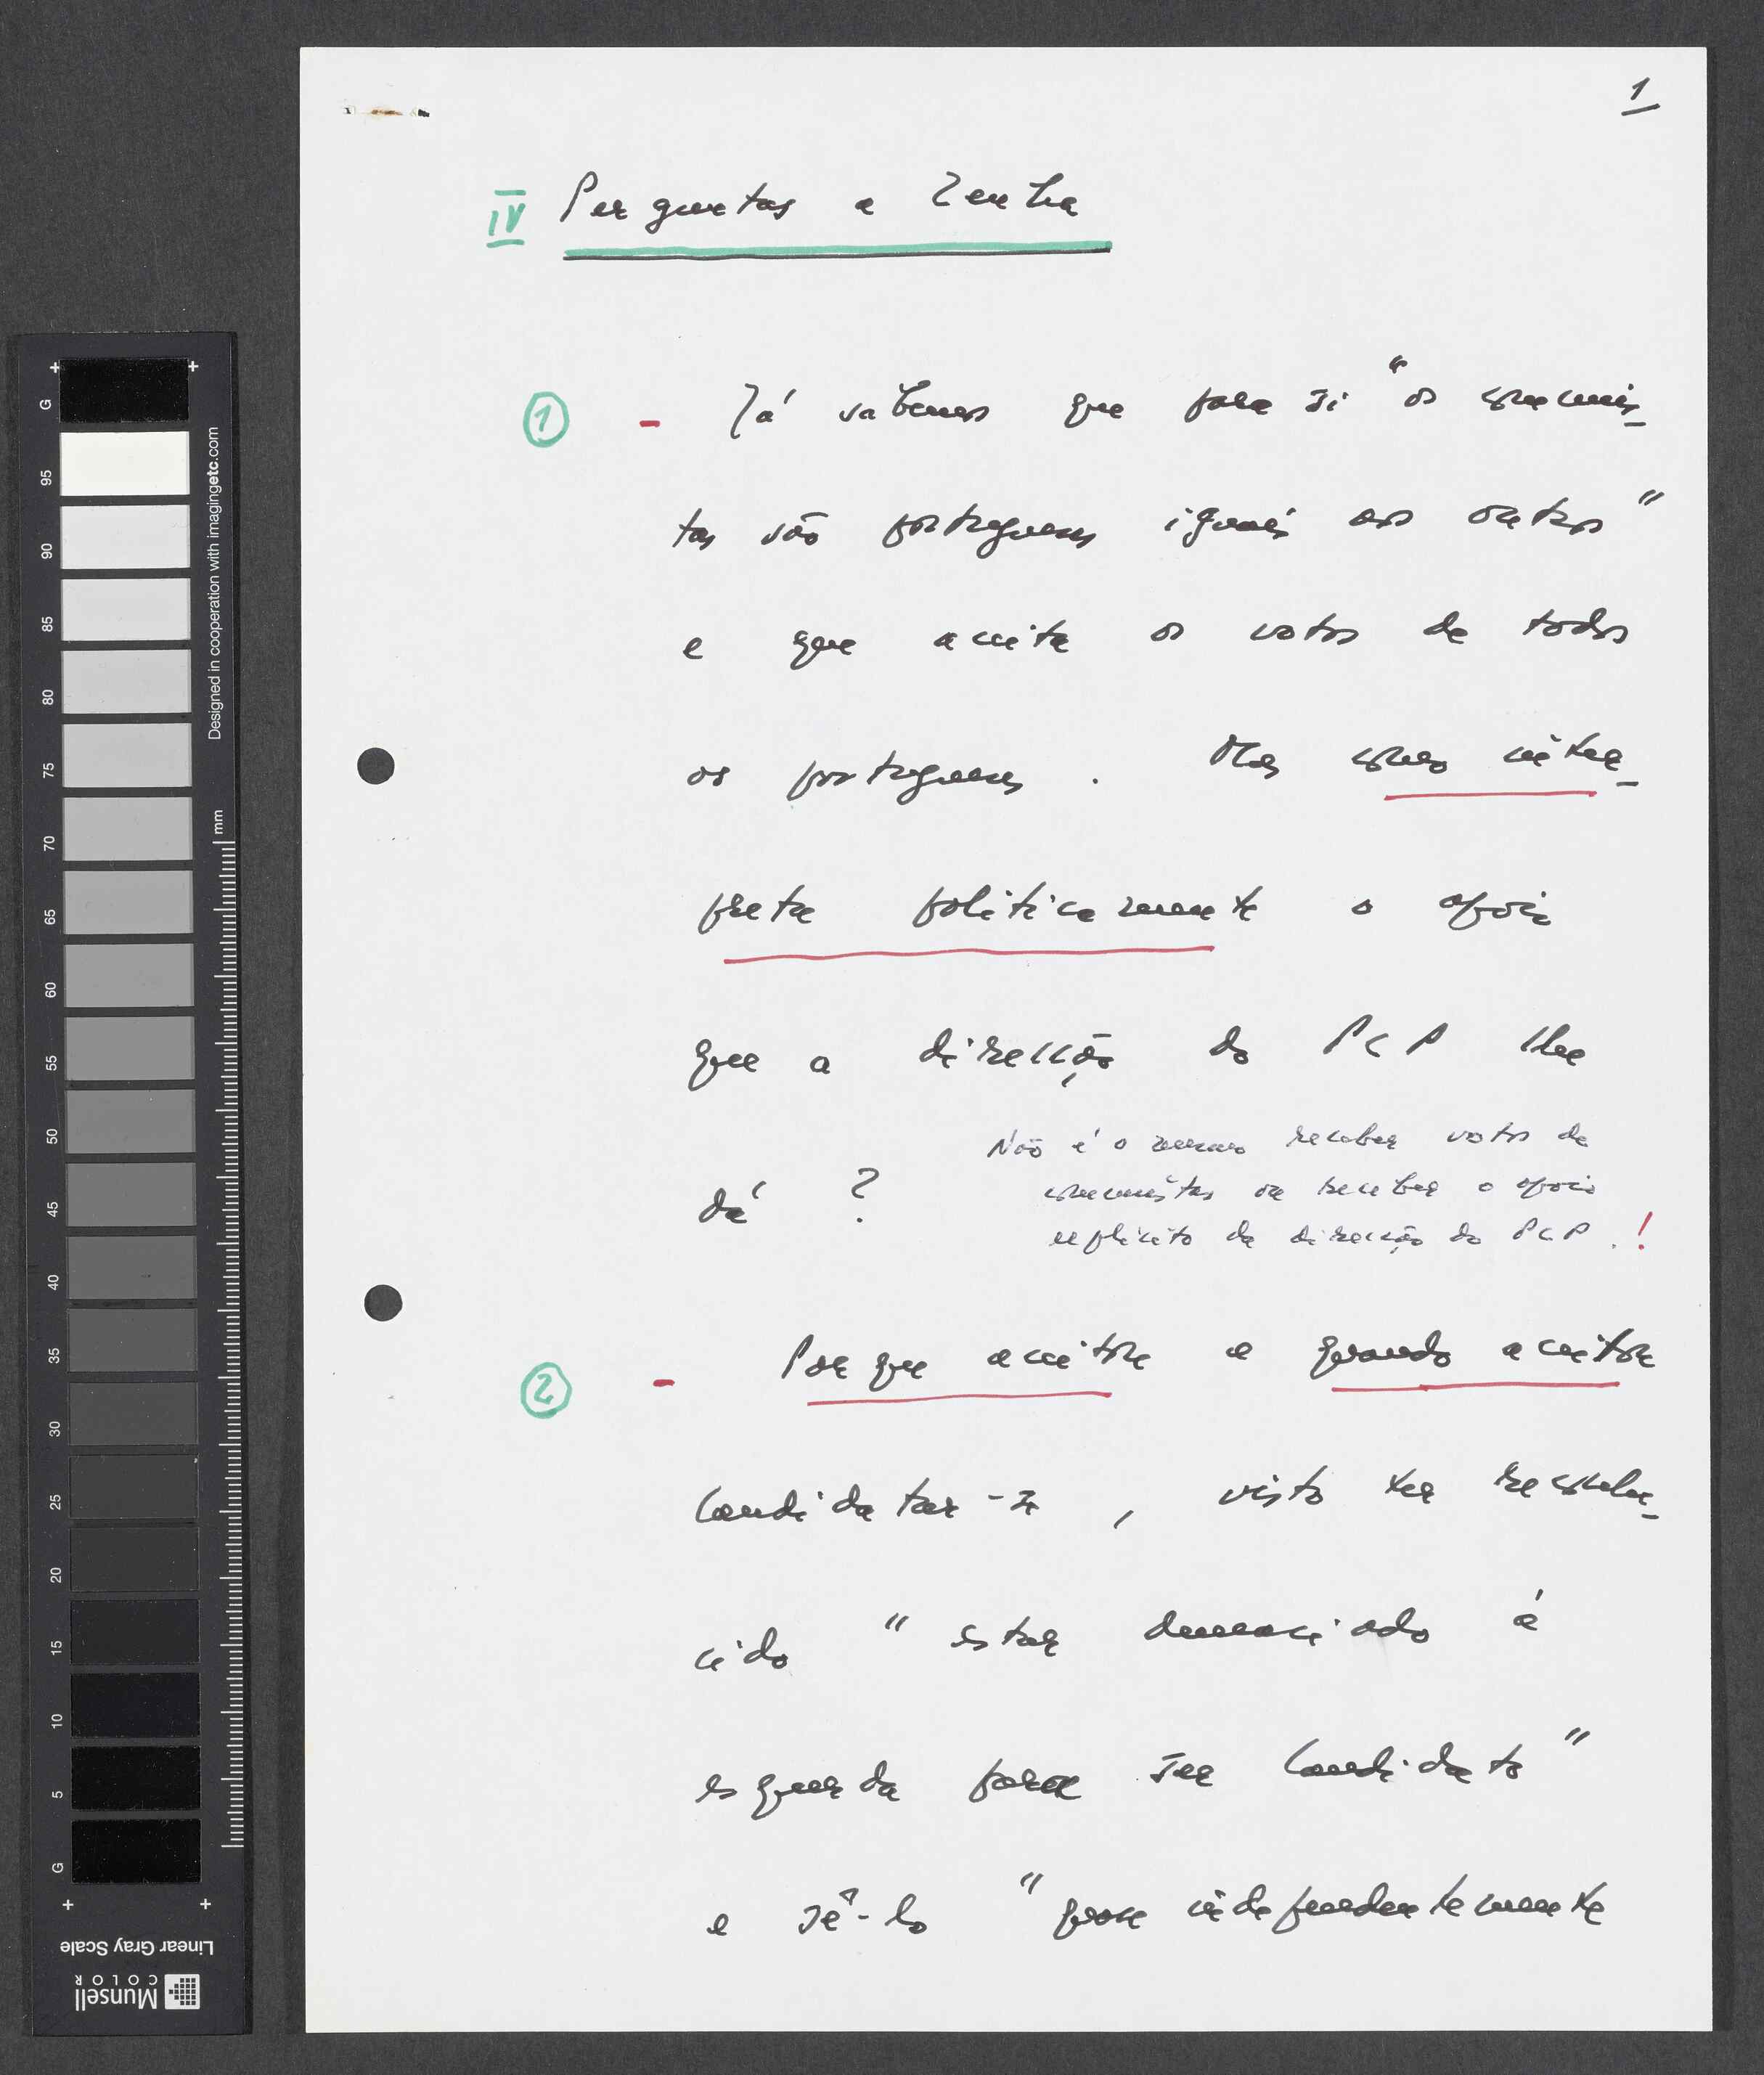 1
IV Perguntas a Zenha
1 - Já sabemos que para si "os comunis-
tas são portugueses iguais aos outros"
e que aceita os votos de todos
os portugueses. Mas como inter-
preta politicamente o apoio
que a direcção do PCP lhe
dá ?
Não é o mesmo receber votos de
comunistas ou receber o apoio
explícito da direcção do PCP.!
2 - Porque aceitou e quando aceitou
candidatar-se, visto ter reconhe-
cido "estar demasiado à
esquerda para ser candidato"
e sê-lo "quase independentemente
G
95
90
85
80
75
70
65
60
55
50
45
40
35
30
25
20
15
10
5
G
mm
Designed in cooperation with imagingetc.com
Linear Gray Scale
Munsell
COLOR